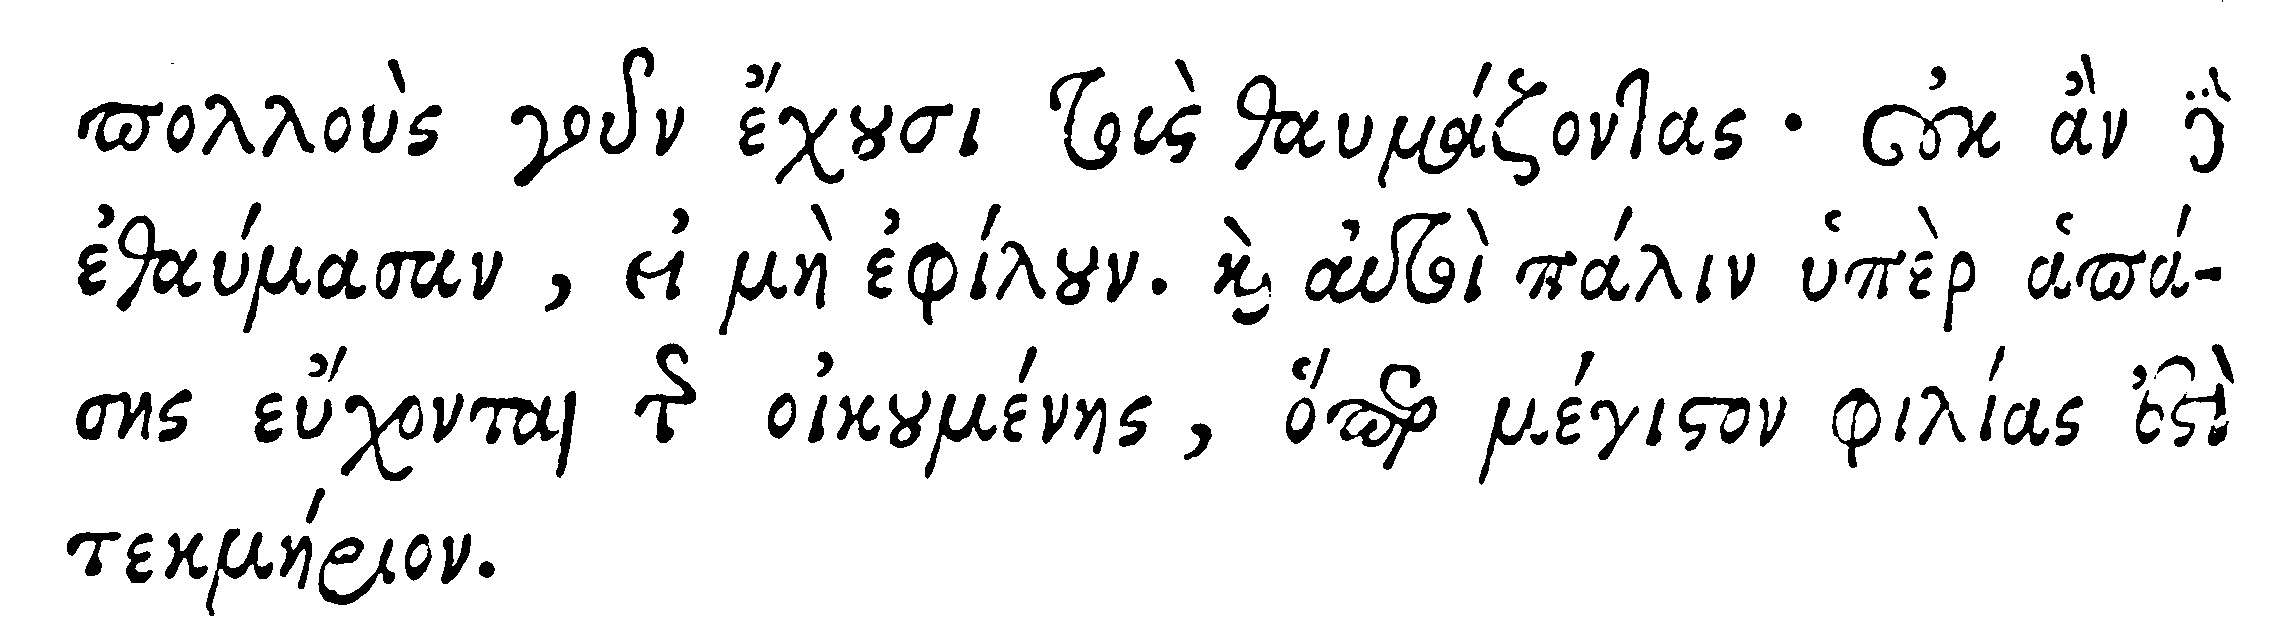 πολλοὺς γοῦν ἔχουσι τοὺς θαυμάζοντας· οὐκ ἂν δὲ
ἐθαύμασαν, εἰ μὴ ἐφίλουν. καὶ αὐτοὶ πάλιν ὑπὲρ ἁπά-
σης εὔχονται τῆς οἰκουμένης, ὅπερ μέγιστον φιλίας ἐστὶ
τεκμήριον.